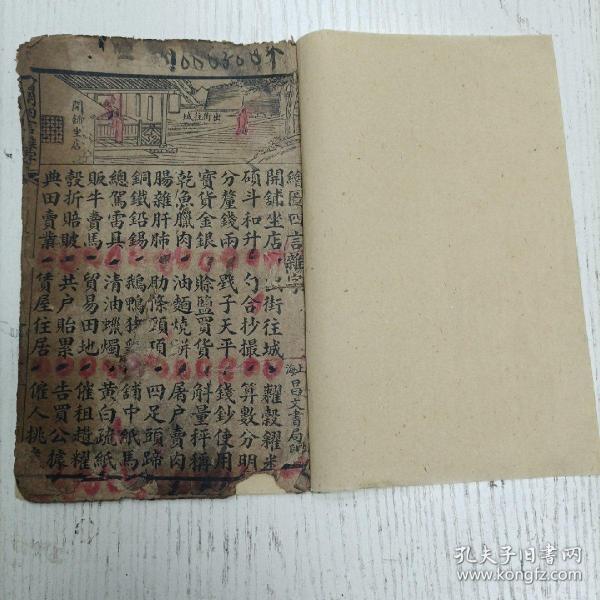 1000500个
開鋪坐店
出街往城
繪圖四言雜字
上海昌文書局印
開鋪坐店 街往城 糶穀糴米
碩斗和升 勺合抄撮 算數分明
分釐錢兩 戥子天平 錢鈔使用
寶貨金銀 賒鹽買貨 斛量秤稱
乾魚臘肉 油麵燒餅 屠户賣肉
腸雜肝肺 肋條頸項 四足頭蹄
銅鐵鉛錫 鵝鴨 舖中紙馬
總駕雷具 清油蠟燭 黃白疏紙
販牛賣馬 貿易田地 催租趲糧
殼折賠賍 共户貽累 告買公據
典田賣業 賃屋住居 僱人挑
孔夫子旧书网
www.kongfz.com